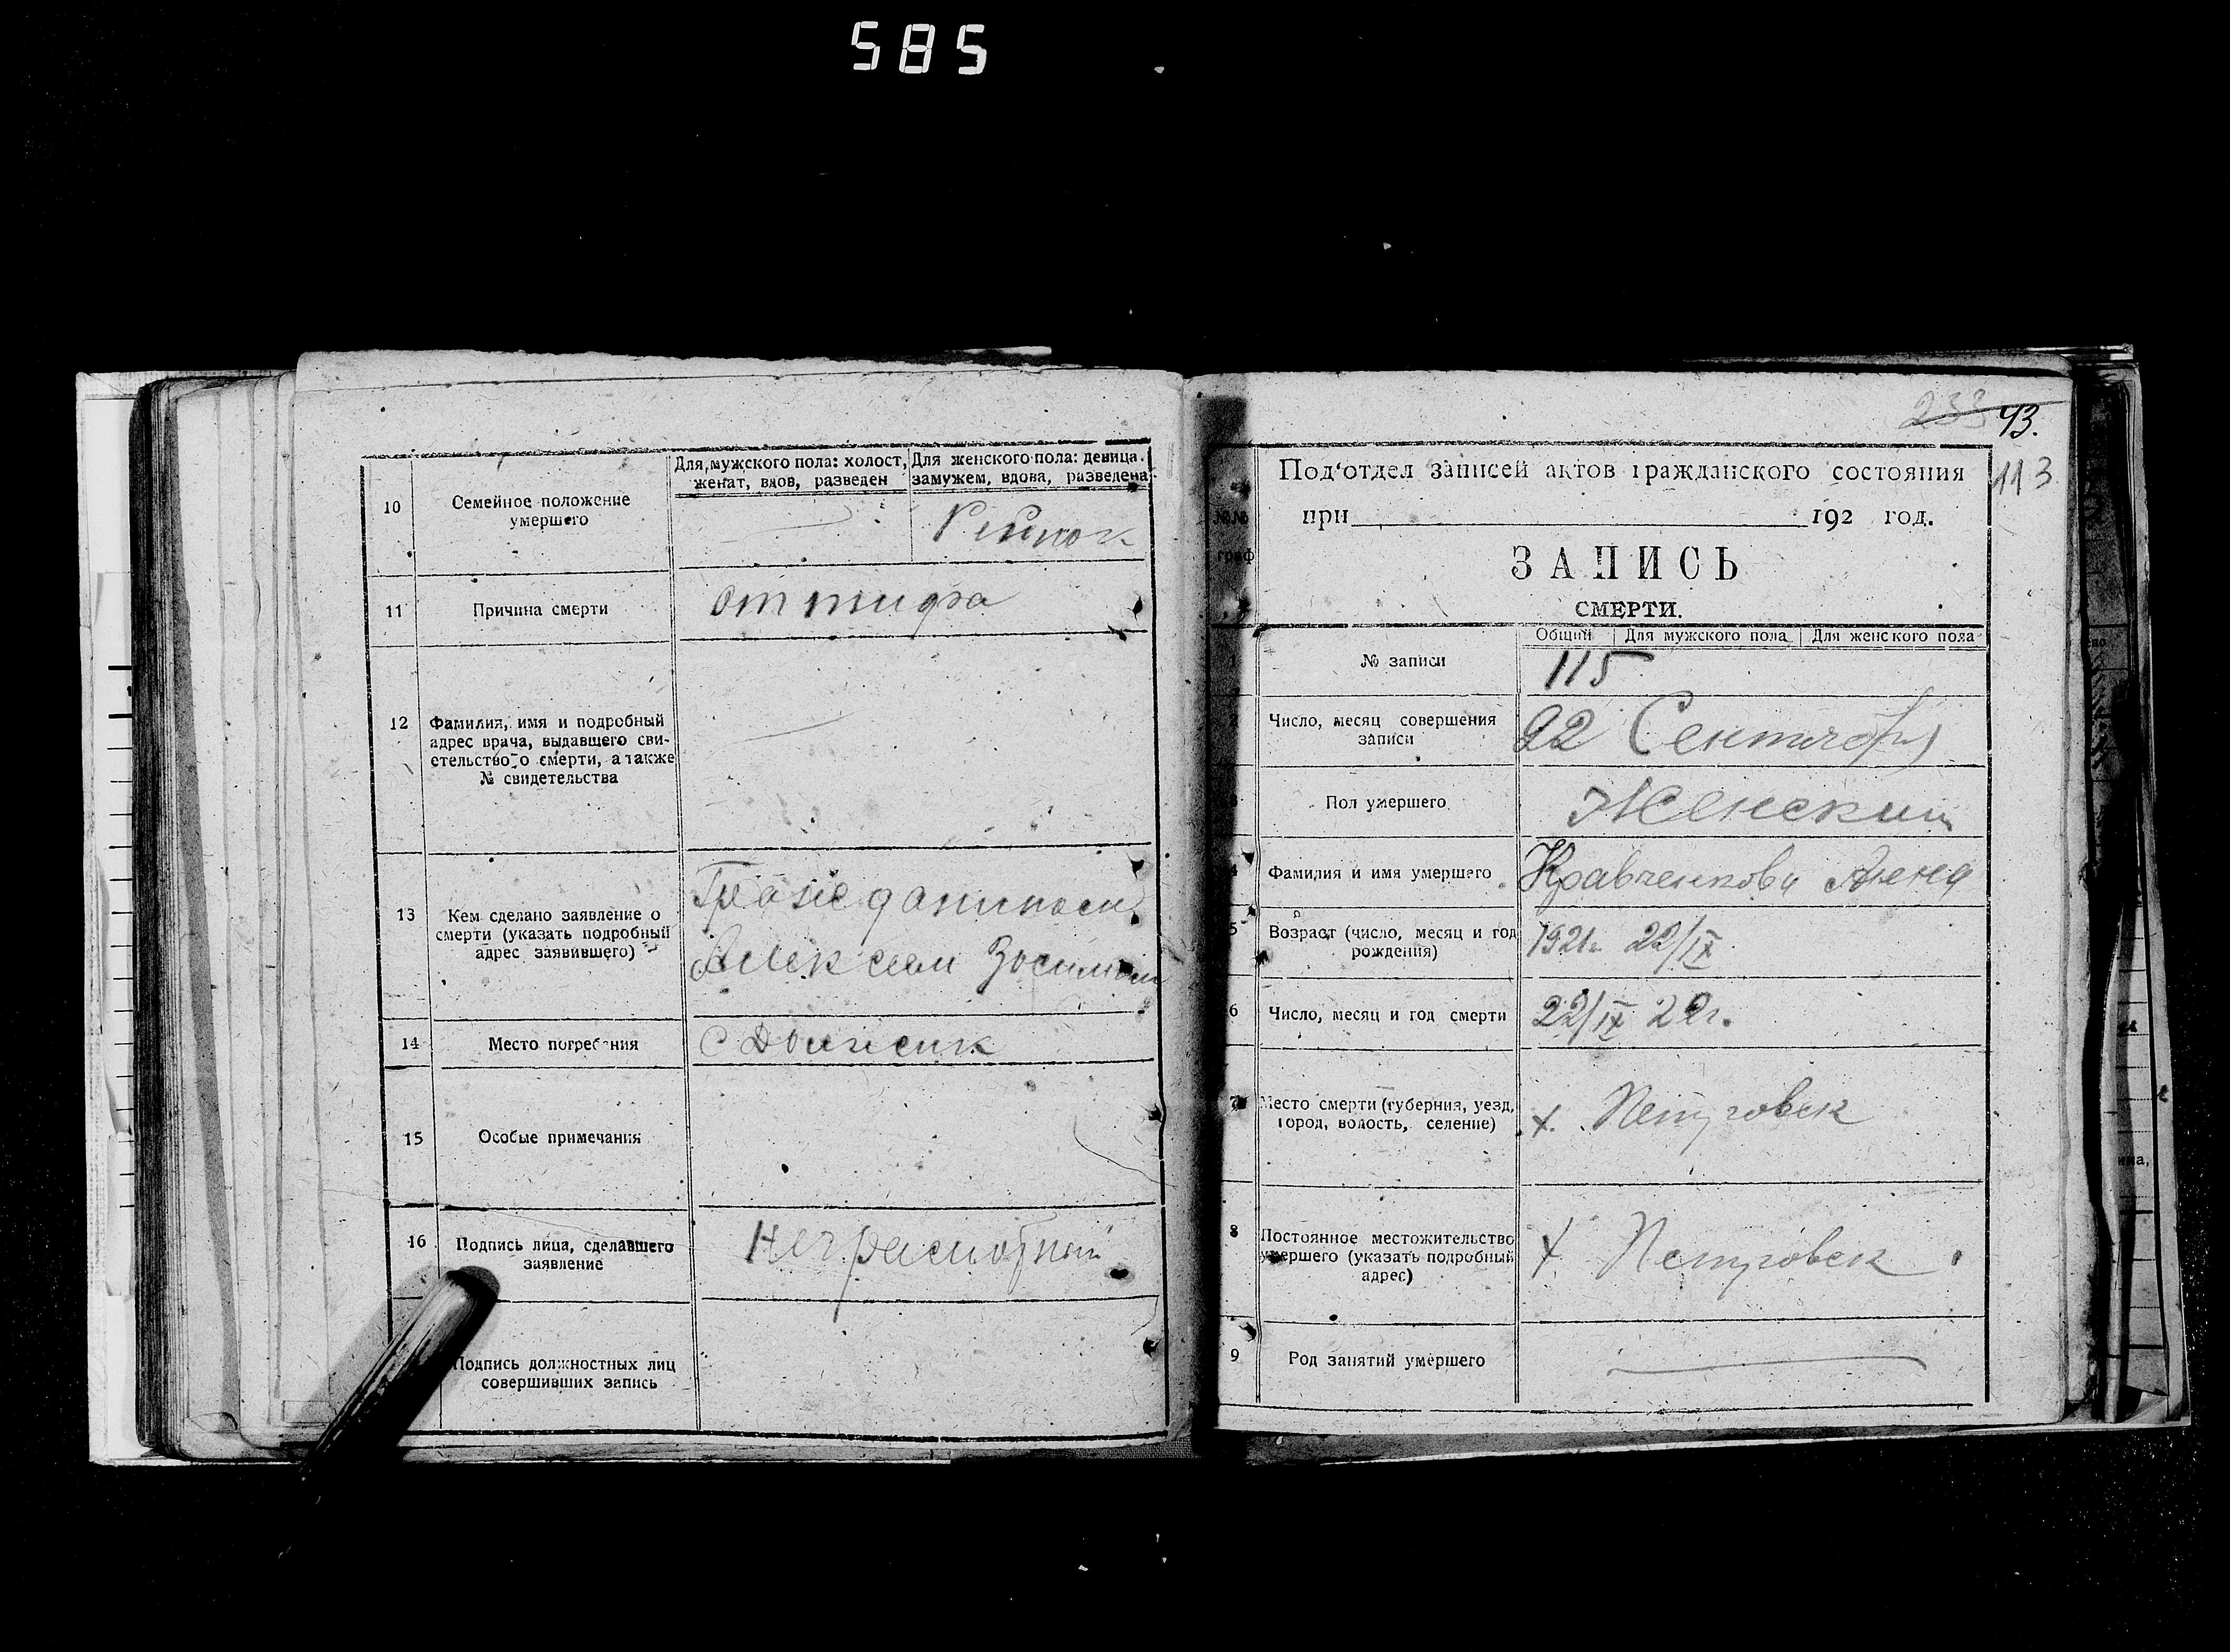 585
10
Семейное положение
умершего
Для мужского пола: холост,
женат, вдов, разведен
Для женского пола: девица.
замужем, вдова, разведена
11
Причина смерти
от тифа
12
Фамилия, имя и подробный
адрес врача, выдавшего сви-
етельство о смерти, а также
№ свидетельства
13
Кем сделано заявление о
смерти (указать подробный
адрес заявившего)
Гражданином
14
Место погребения
15
Особые примечания
16
Подпись лица, сделавшего
заявление
Подпись должностных лиц
совершивших запись
233 43.
113
Под'отдел записей актов гражданского состояния
при 192 год.
№№
граф
ЗАПИСЬ
СМЕРТИ.
Общий Для мужского пола Для женского пола
1
№ записи
115
2
Число, месяц совершения
записи
22 Сентября
3
Пол умершего
Женский
4
Фамилия и имя умершего
Кравченкова
5
Возраст (число, месяц и год
рождения)
1921г. 22/IX
6
Число, месяц и год смерти
22/IX 22г.
7
Место смерти (губерния, уезд,
город, волость, селение)
х. Петровск
8
Постоянное местожительство
умершего (указать подробный
адрес)
х Петровск
9
Род занятий умершего